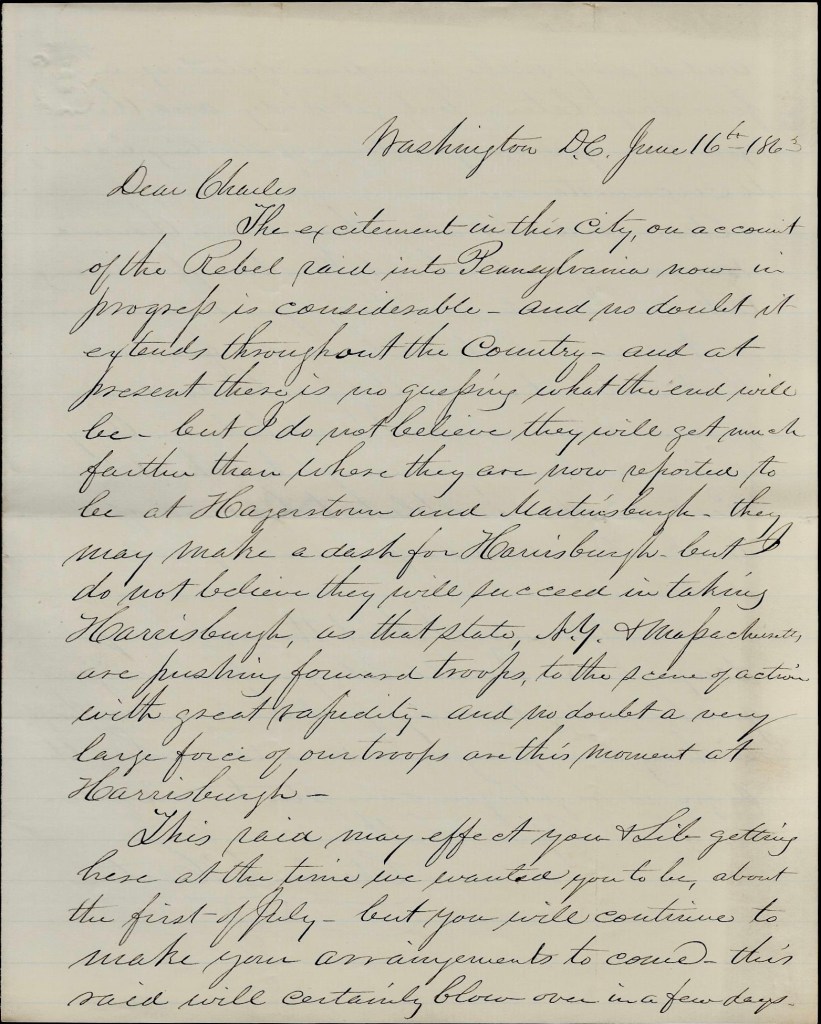 Washington D.C. June 16th 1863
Dear Charles
The excitement in this City, on account
of the Rebel raid into Pennsylvania now in
progress is considerable - and no doubt it
extends throughout the Country - and at
present there is no guessing what the end will
be - but I do not believe they will get much
farther than where they are now reported to
be at Hagerstown and Martinsburgh - they
may make a dash for Harrisburgh - but I
do not believe they will succeed in taking
Harrisburgh, as that state, N.Y. & Massachusetts
are pushing forward troops, to the scene of action
with great rapidity - and no doubt a very
large force of our troops are this moment at
Harrisburgh -
This raid may effect you & Lib getting
here at the time we wanted you to be, about
the first of July - but you will continue to
make your arrangements to come - this
raid will certainly blow over in a few days -